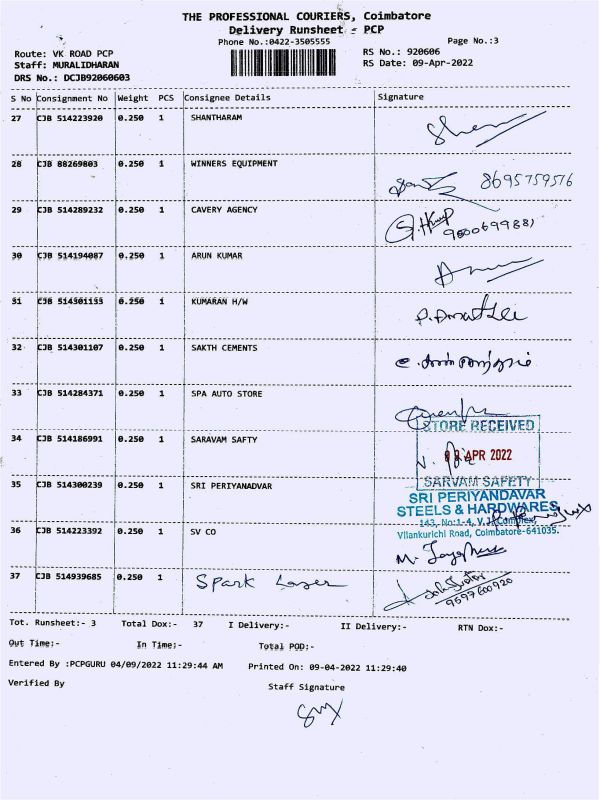 THE PROFESSIONAL COURIERS, Coimbatore
Delivery Runsheet - PCP
Phone No.:0422-3505555
Page No.:3
Route: VK ROAD PCP
RS No.: 920606
Staff: MURALIDHARAN
RS Date: 09-Apr-2022
DRS No.: DCJB92060603
S No Consignment No Weight PCS Consignee Details Signature
27 CJB 514223920 0.250 1 SHANTHARAM
28 CJB 88269803 0.250 1 WINNERS EQUIPMENT
8695759516
29 CJB 514289232 0.250 1 CAVERY AGENCY
30 CJB 514194087 0.250 1 ARUN KUMAR
31 CJB 514301153 0.250 1 KUMARAN H/W
32 CJB 514301107 0.250 1 SAKTH CEMENTS
33 CJB 514284371 0.250 1 SPA AUTO STORE
STORE RECEIVED
34 CJB 514186991 0.250 1 SARAVAM SAFTY
APR 2022
SARVAM SAFETY
35 CJB 514300239 0.250 1 SRI PERIYANADVAR
SRI PERIYANDAVAR
STEELS & HARDWARES
143, No:1-4, V.J. Complex,
Vilankurichi Road, Coimbatore-641035.
36 CJB 514223392 0.250 1 SV CO
37 CJB 514939685 0.250 1 Spark Laser
9597600920
Tot. Runsheet:- 3 Total Dox:- 37 I Delivery:- II Delivery:- RTN Dox:-
Out Time:- In Time:- Total POD:-
Entered By :PCPGURU 04/09/2022 11:29:44 AM Printed On: 09-04-2022 11:29:40
Verified By Staff Signature